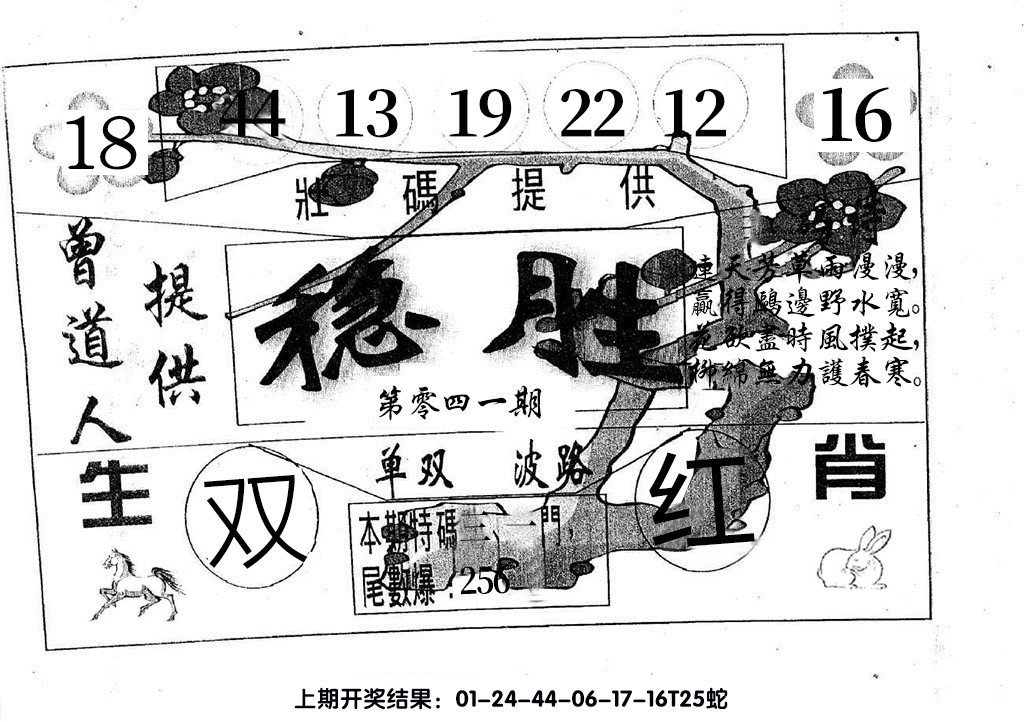 18 44 13 19 22 12 16
壯碼提供
曾道人
提供
稳胜
第零四一期
連天芳草雨漫漫,
贏得鷗邊野水寬。
花欲盡時風撲起,
柳綿無力護春寒。
单双 波路
生肖
双
红
本期特碼三、一門,
尾數爆:256
上期开奖结果:01-24-44-06-17-16T25蛇